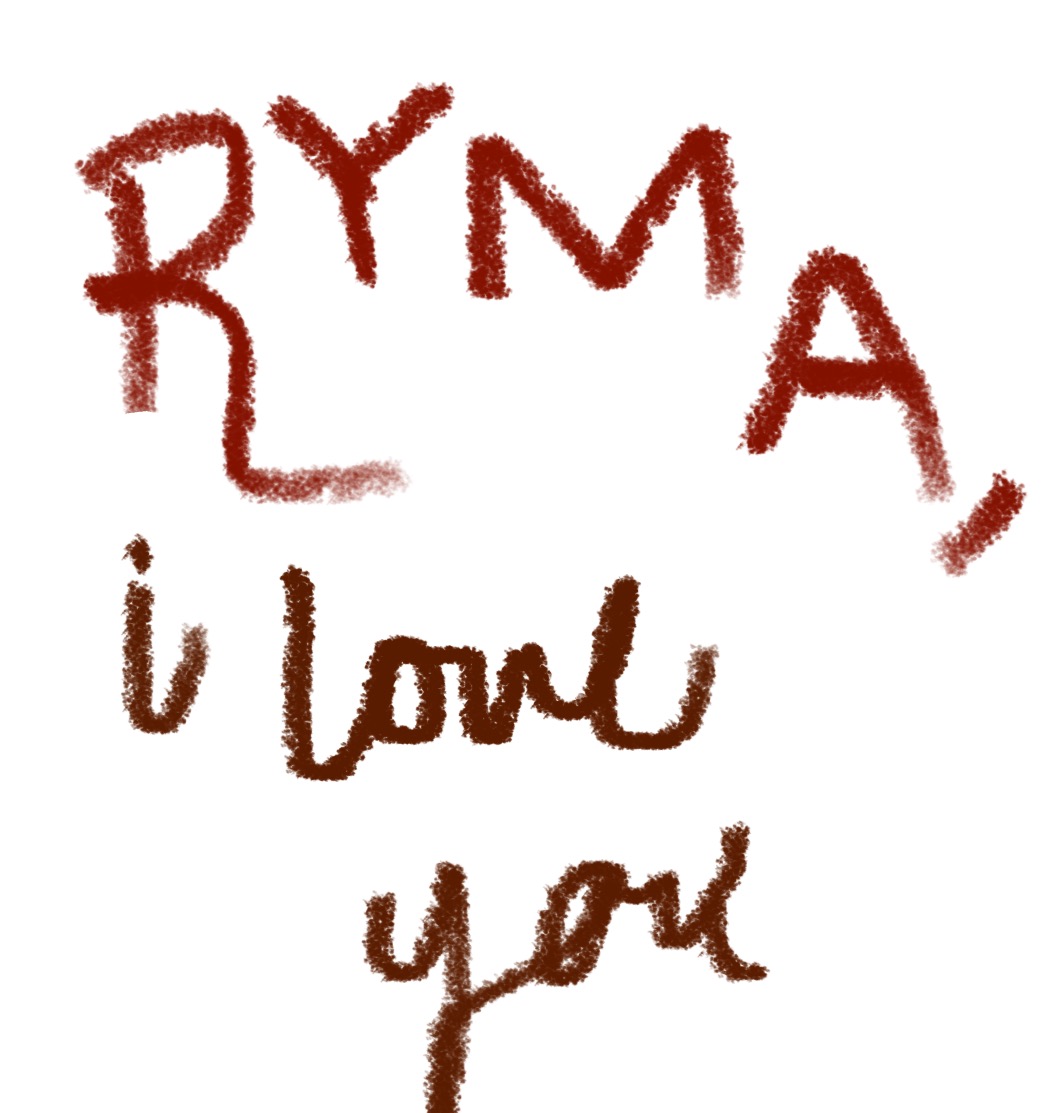 RYMA,
i love
you